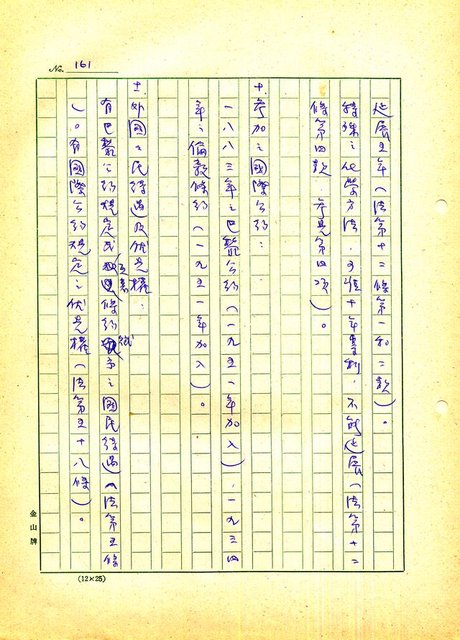 No. 161
延展五年(法第十二條第一和二款)。
特殊之化學方法,可准十年專利,不能延展(法第十二
條第四款,參見第四項)。
十、參加之國際公約:
一八八三年之巴黎公約(一九五一年加入),一九三四
年之倫敦條約(一九五一年加入)。
十一、外國之國民待遇及優先權:
有巴黎公約規定或互惠條約之國民待遇(法第五條
)。有國際公約規定之優先權(法第五十八條)。
金山牌
(12×25)